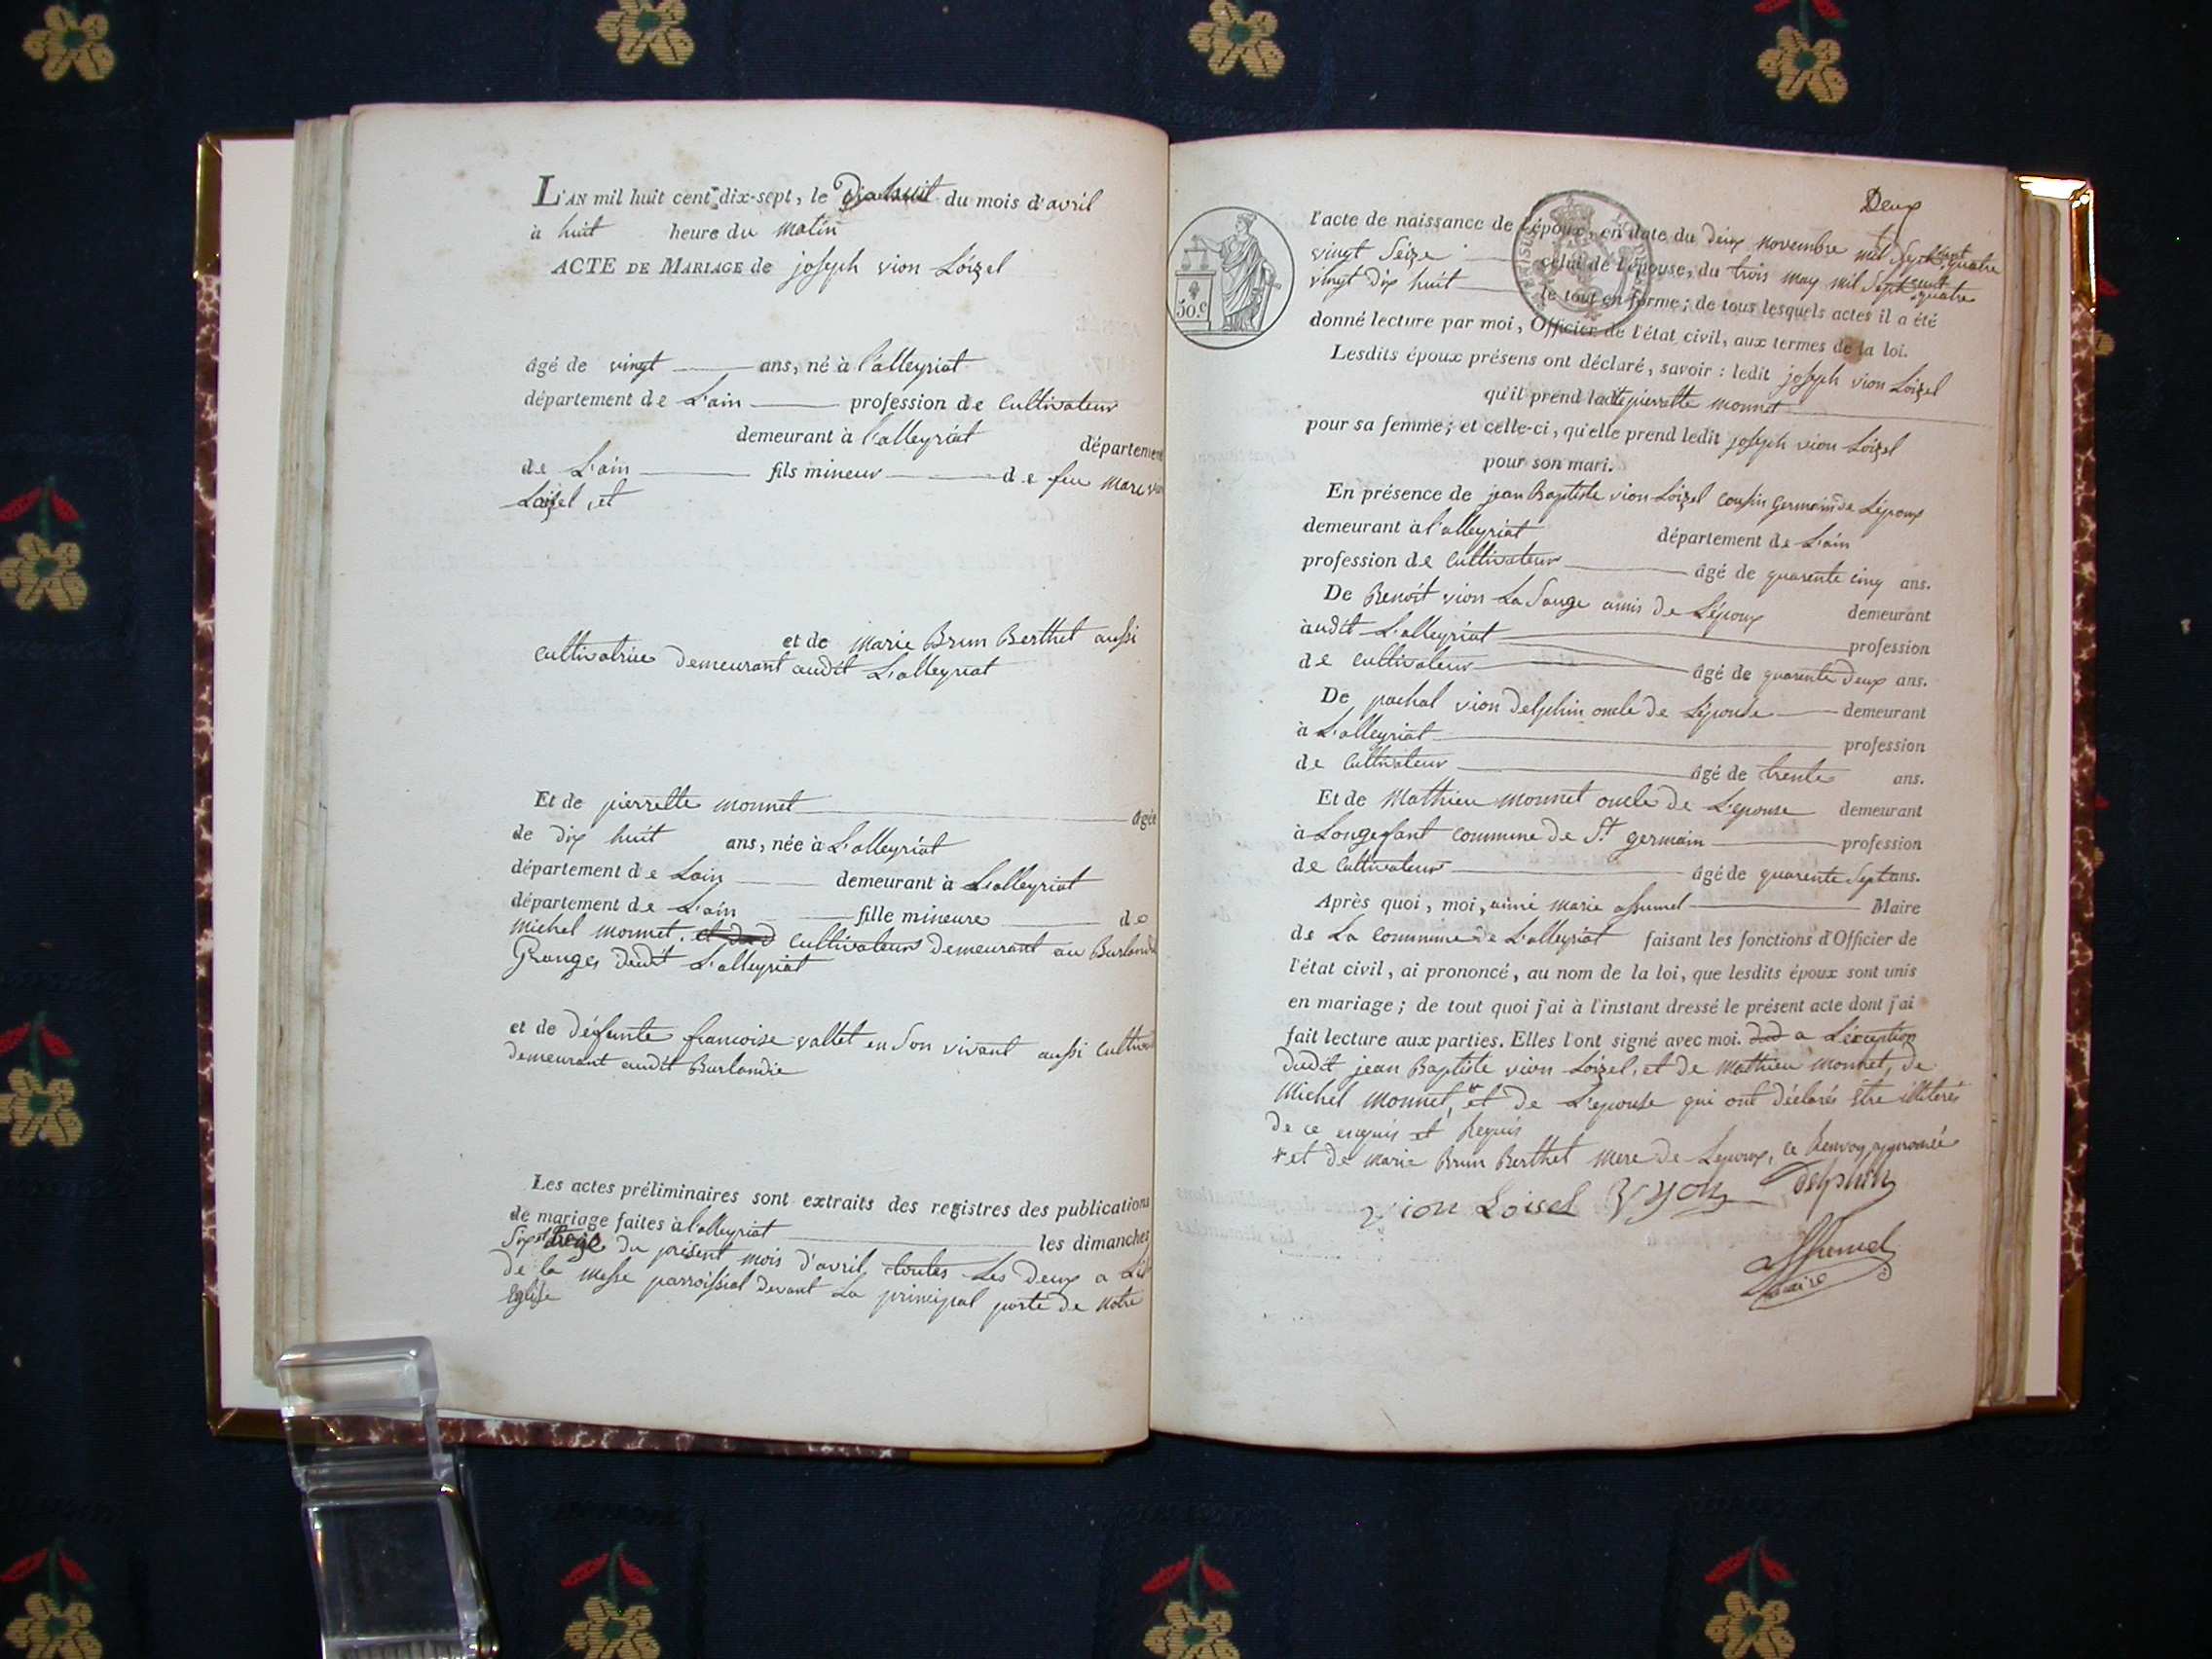 L'AN mil huit cent dix-sept, le Dixhuit du mois d'avril
à huit heure du matin
ACTE DE MARIAGE de joseph vion Loizel
âgé de vingt ans, né à l'alleyriat
département de L'ain profession de cultivateur
demeurant à l'alleyriat département
de L'ain fils mineur de feu marc vion
Loizel, et
et de marie Brun Berthet aussi
cultivatrice demeurant audit L'alleyriat
Et de pierrette monnet âgée
de dix huit ans, née à L'alleyriat
département de Lain demeurant à L'alleyriat
département de L'ain fille mineure de
michel monnet, cultivateurs demeurant au
Granges dudit L'alleyriat
et de défunte francoise vallet en son vivant aussi
demeurant audit Burlandie
Les actes préliminaires sont extraits des registres des publications
de mariage faites à l'alleyriat les dimanches
Six et treize du présent mois d'avril, toutes Les deux a
de la messe parroissial devant La principal porte de notre
Eglise
Deux
l'acte de naissance de l'époux, en date du deux novembre mil Sept cent quatre
vingt Seize celui de l'épouse, du trois may mil Sept cent quatre
vingt dix huit le tout en forme; de tous lesquels actes il a été
50.c
donné lecture par moi, Officier de l'état civil, aux termes de la loi.
Lesdits époux présens ont déclaré, savoir : ledit joseph vion Loizel
qu'il prend ladite pierrette monnet
pour sa femme; et celle-ci, qu'elle prend ledit joseph vion Loizel
pour son mari.
En présence de jean Baptiste vion Loizel cousin germain de L'époux
demeurant à l'alleyriat département de L'ain
profession de cultivateur âgé de quarente cinq ans.
De Benoît vion La Sauge amis de L'époux demeurant
audit L'alleyriat profession
de cultivateur âgé de quarente deux ans.
De pachal vion delphin oncle de L'épouse demeurant
à L'alleyriat profession
de cultivateur âgé de trente ans.
Et de Mathieu monnet oncle de L'epouse demeurant
à Longefant commune de St germain profession
de cultivateur âgé de quarente Sept ans.
Après quoi, moi, aimé marie assumel Maire
de La commune de L'alleyriat faisant les fonctions d'Officier de
l'état civil, ai prononcé, au nom de la loi, que lesdits époux sont unis
en mariage; de tout quoi j'ai à l'instant dressé le présent acte dont j'ai
fait lecture aux parties. Elles l'ont signé avec moi. a L'exception
dudit jean Baptiste vion Loizel, et de Mathieu monnet, de
Michel monnet, et de L'epouse qui ont déclarés être illiterés
de ce enquis et Requis
et de marie Brun Berthet mere de Lepoux, ce Renvoy approuvé
vion Loisel Vyon Delphin
Assumel
Maire